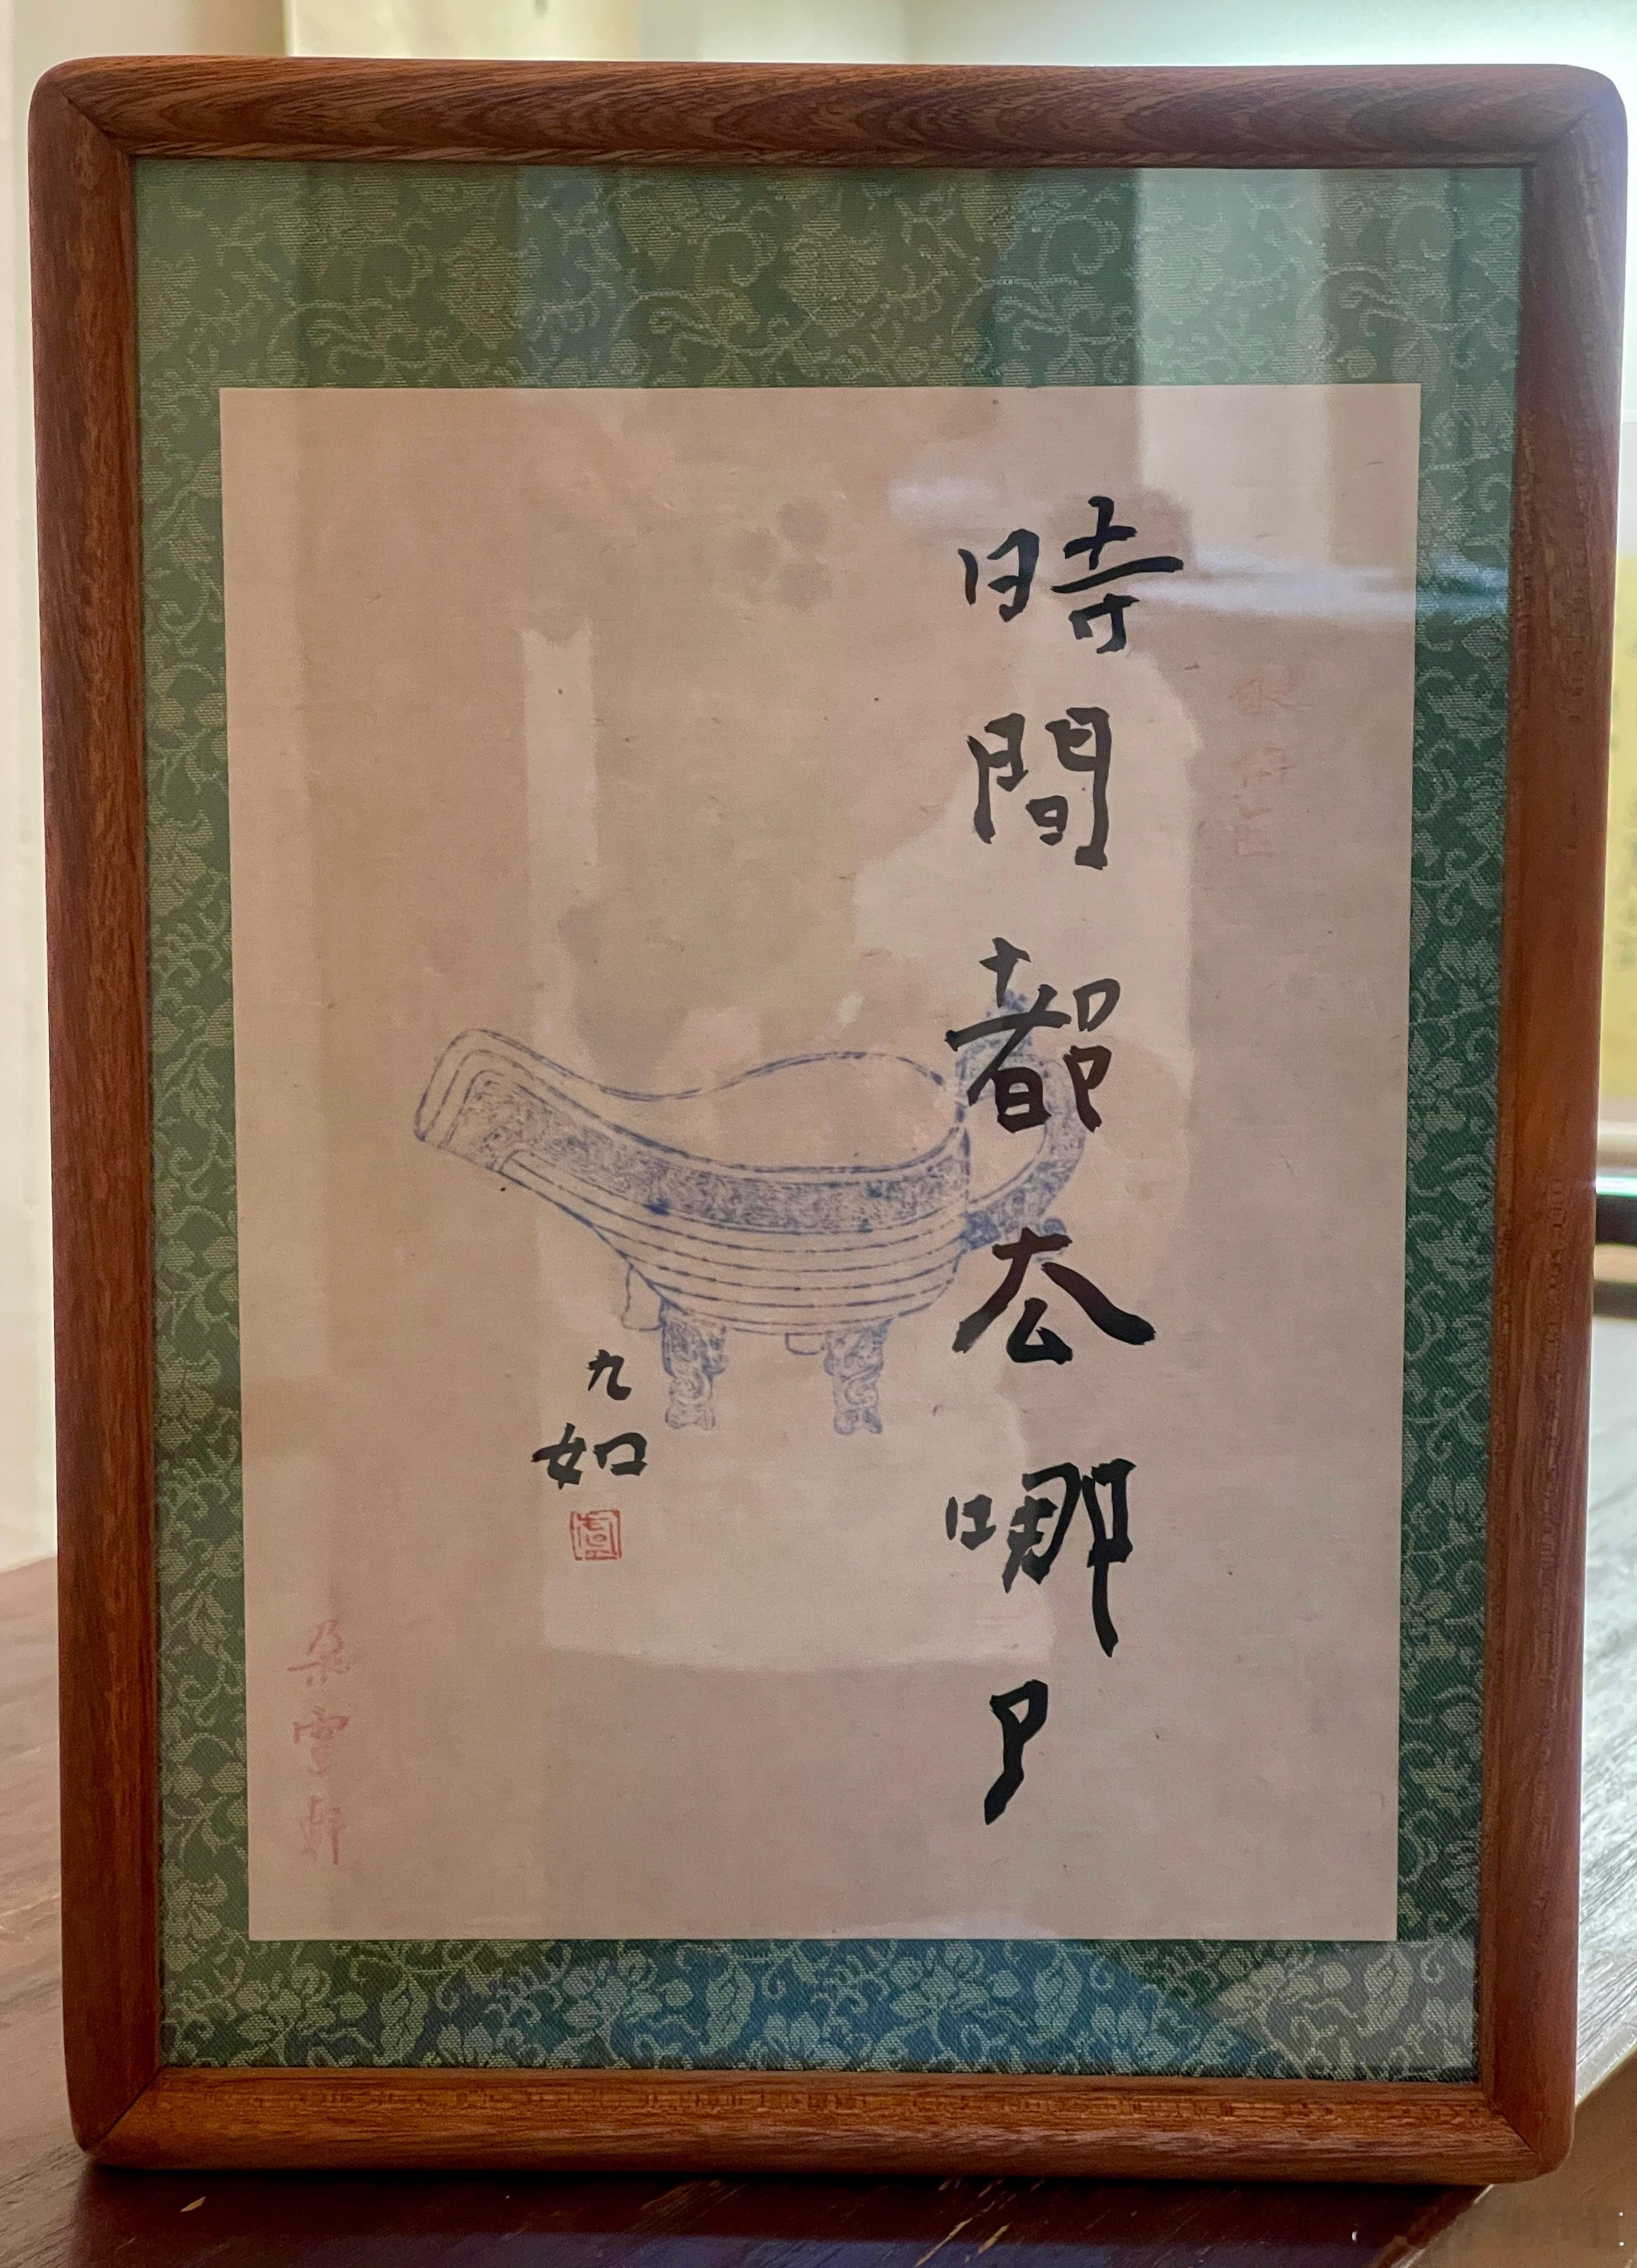 時間都去哪了
九如
朵雲軒